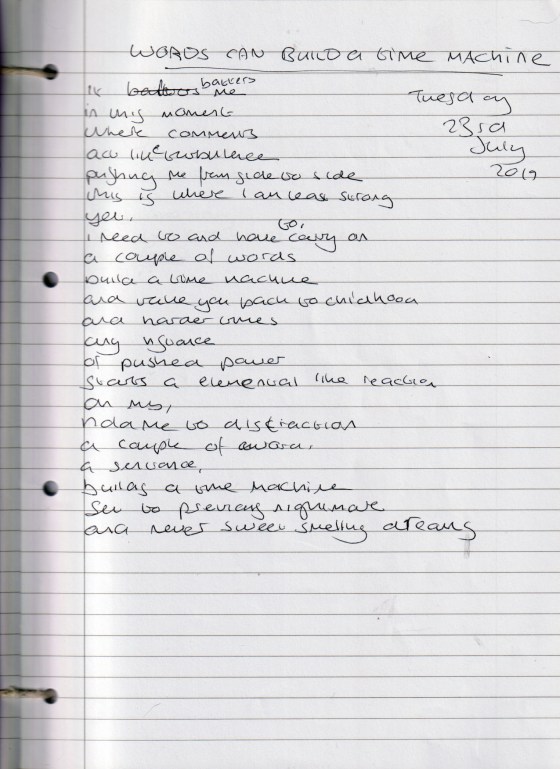 WORDS CAN BUILD a time MACHINE
Tuesday
23rd
July
2019
it batters me
in this moment
where comments
act like turbulence
pushing me from side to side
this is where I am least strong
yet,
i need to and have to, carry on
a couple of words
build a time machine
and take you back to childhood
and harder times
any
of pushed power
starts a elemental like reaction
on my,
me to distraction
a couple of
a sentance,
builds a time machine
set to previous nightmare
and never sweet smelling dreams